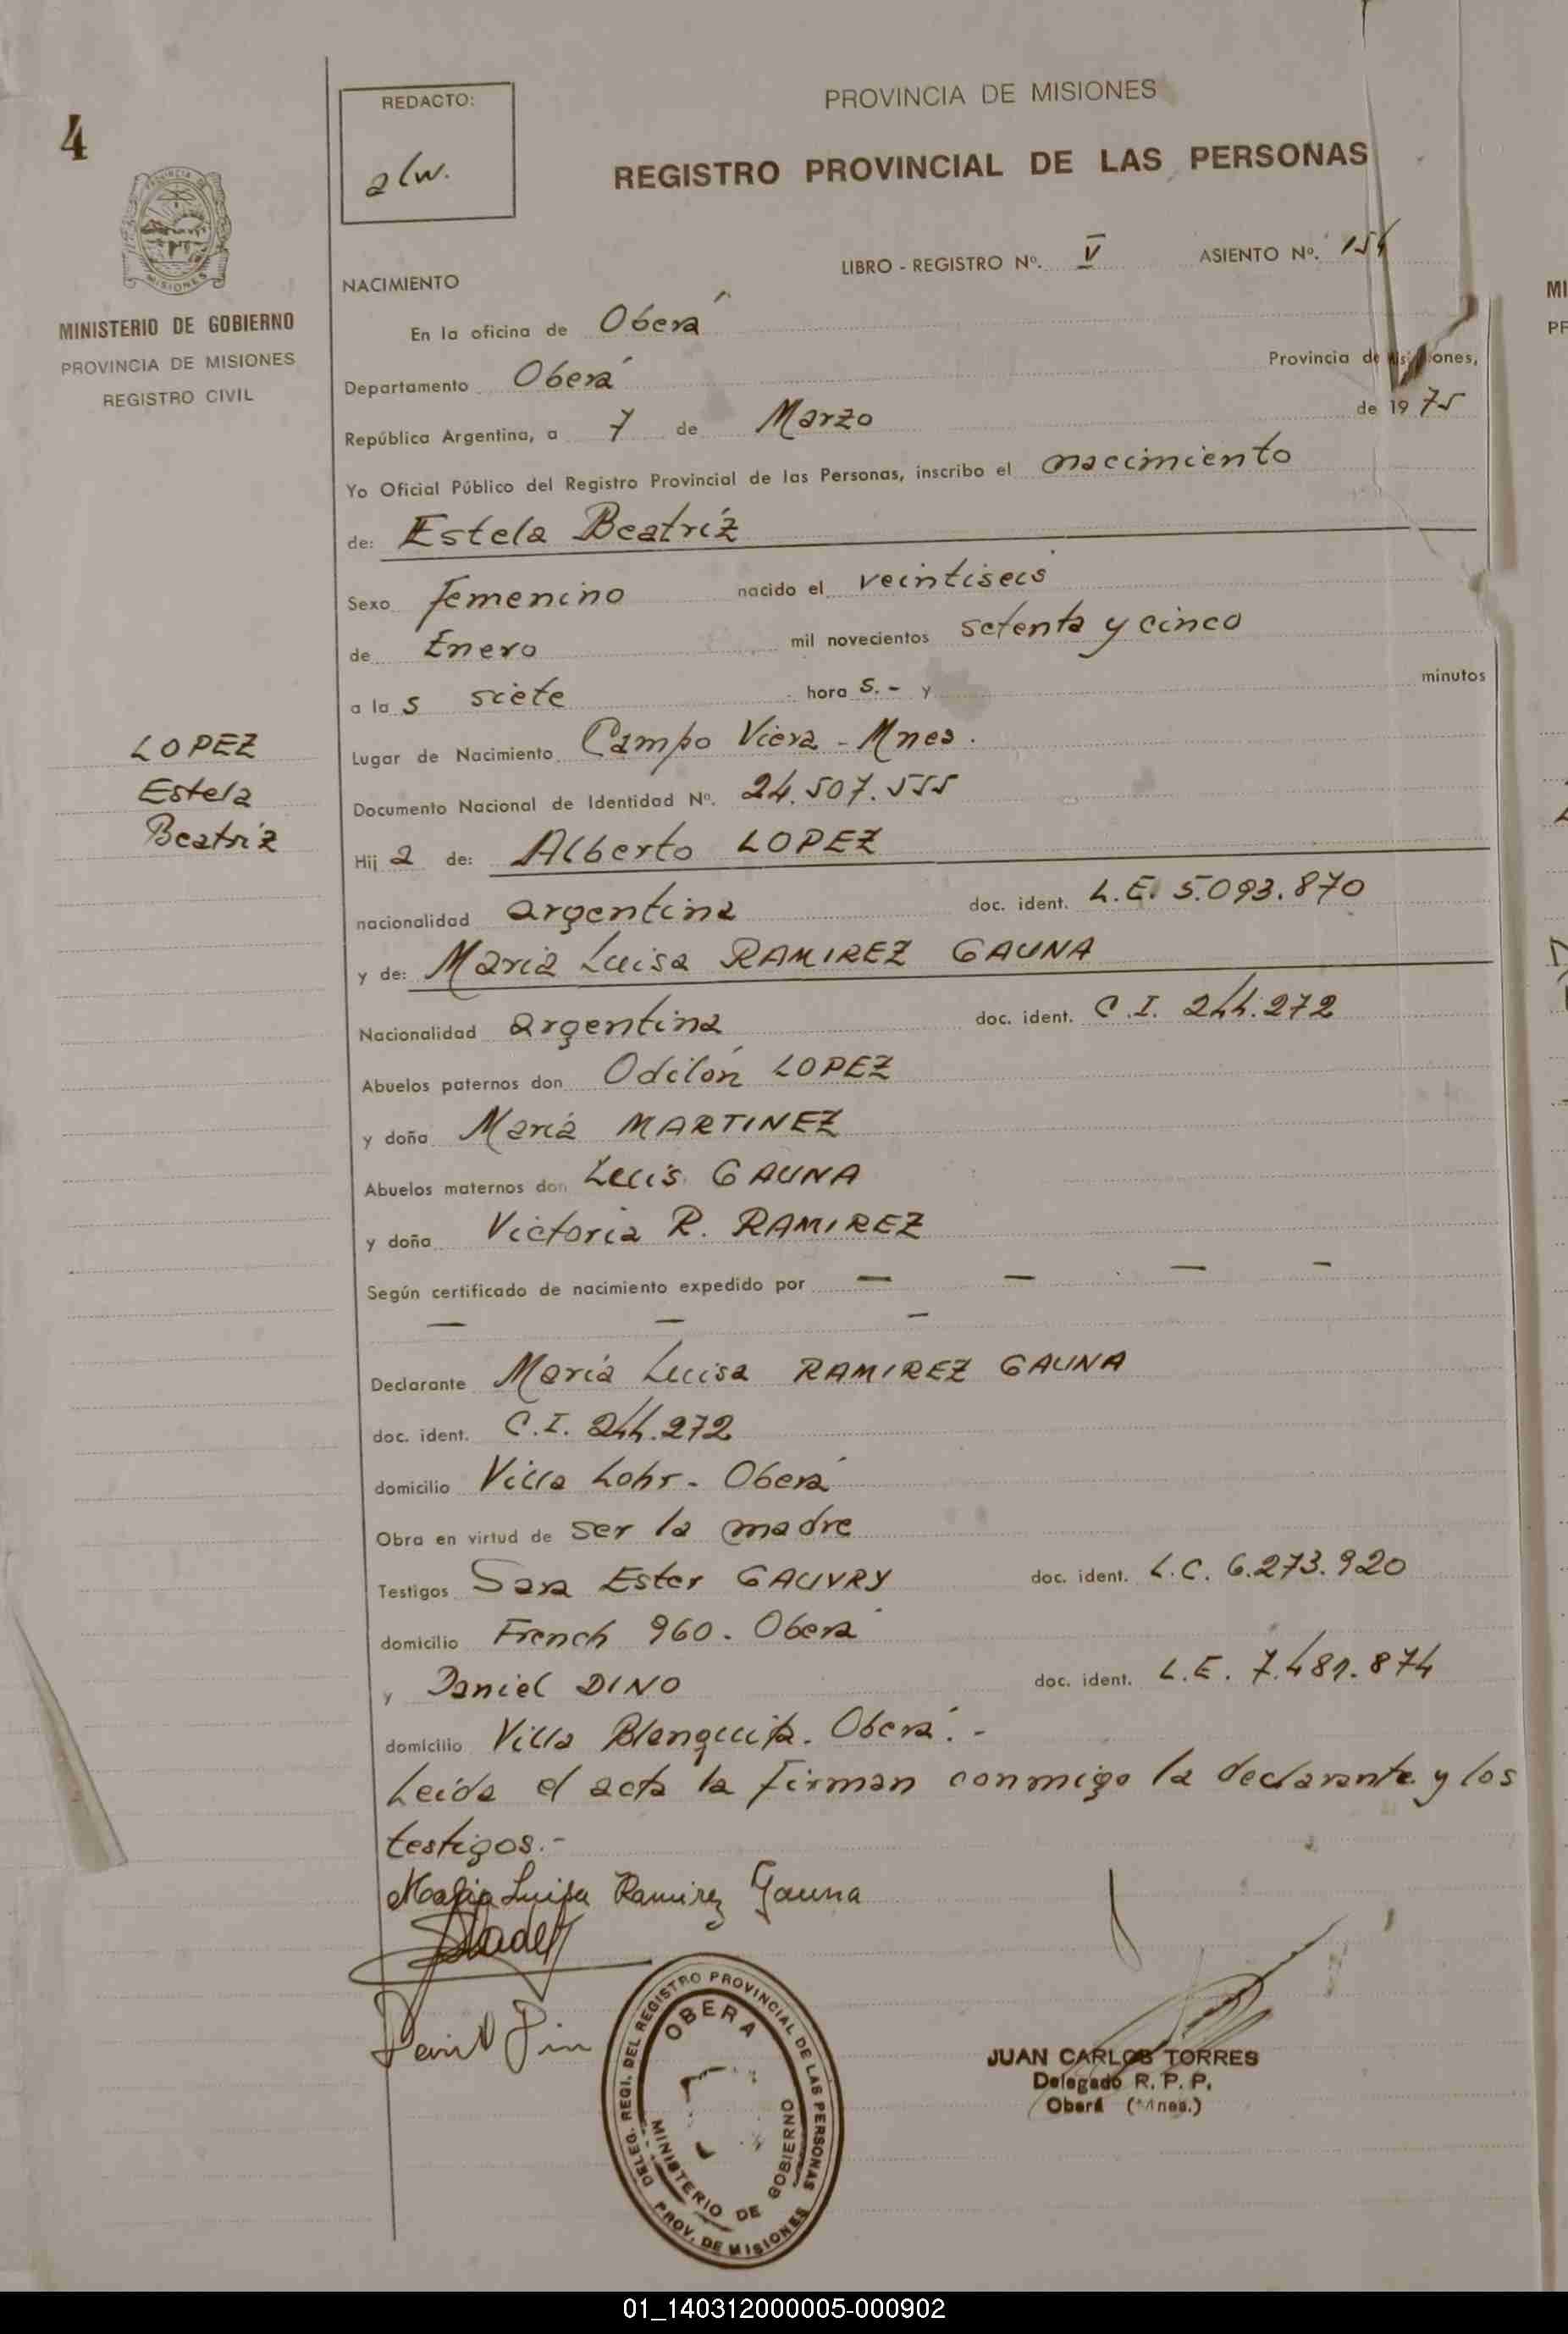 4
REDACTO:
alw.
PROVINCIA DE MISIONES
REGISTRO PROVINCIAL DE LAS PERSONAS
LIBRO - REGISTRO Nº. V ASIENTO Nº. 154
NACIMIENTO
MINISTERIO DE GOBIERNO
PROVINCIA DE MISIONES
REGISTRO CIVIL
En la oficina de Oberá
Departamento Oberá Provincia de Misiones,
República Argentina, a 7 de Marzo de 1975
Yo Oficial Público del Registro Provincial de las Personas, inscribo el nacimiento
de: Estela Beatríz
Sexo femenino nacido el veintiseis
de Enero mil novecientos setenta y cinco
a las siete hora s.- y minutos
Lugar de Nacimiento Campo Viera - Mnes.
Documento Nacional de Identidad Nº. 24.507.555
LOPEZ
Estela
Beatríz
Hija de: Alberto LOPEZ
nacionalidad argentina doc. ident. L.E. 5.093.870
y de: María Luisa RAMIREZ GAUNA
Nacionalidad argentina doc. ident. C.I. 244.272
Abuelos paternos don Odilón LOPEZ
y doña María MARTINEZ
Abuelos maternos don Luis GAUNA
y doña Victoria R. RAMIREZ
Según certificado de nacimiento expedido por — — — —
— — —
Declarante María Luisa RAMIREZ GAUNA
doc. ident. C.I. 244.272
domicilio Villa Lohr - Oberá
Obra en virtud de ser la madre
Testigos Sara Ester GAUVRY doc. ident. L.C. 6.273.920
domicilio French 960 - Oberá
y Daniel DINO doc. ident. L.E. 7.481.874
domicilio Villa Blanquita. Oberá.-
Leída el acta la firman conmigo la declarante y los
testigos.-
Maria Luisa Ramirez Gauna
DELEG. REGI. DEL REGISTRO PROVINCIAL DE LAS PERSONAS
OBERA
MINISTERIO DE GOBIERNO
PROV. DE MISIONES
JUAN CARLOS TORRES
Delegado R. P. P.
Oberá (Mnes.)
01_140312000005-000902